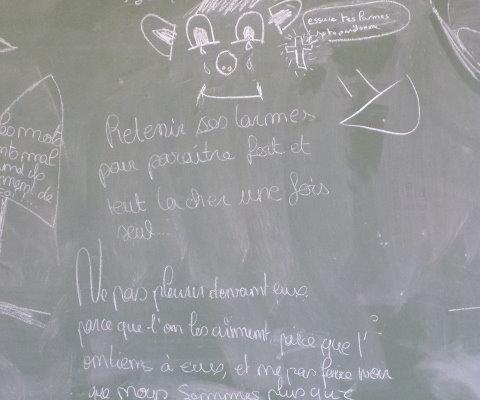 essuie tes larmes
les mots
mal
ment de
Retenir ses larmes
pour paraître fort et
tout lacher une fois
seul...
Ne pas pleurer devant eux,
parce que l'on les aiment, parce que l'
?
ontiens à eux, et ne pas faire voir
que nous sommes plus que